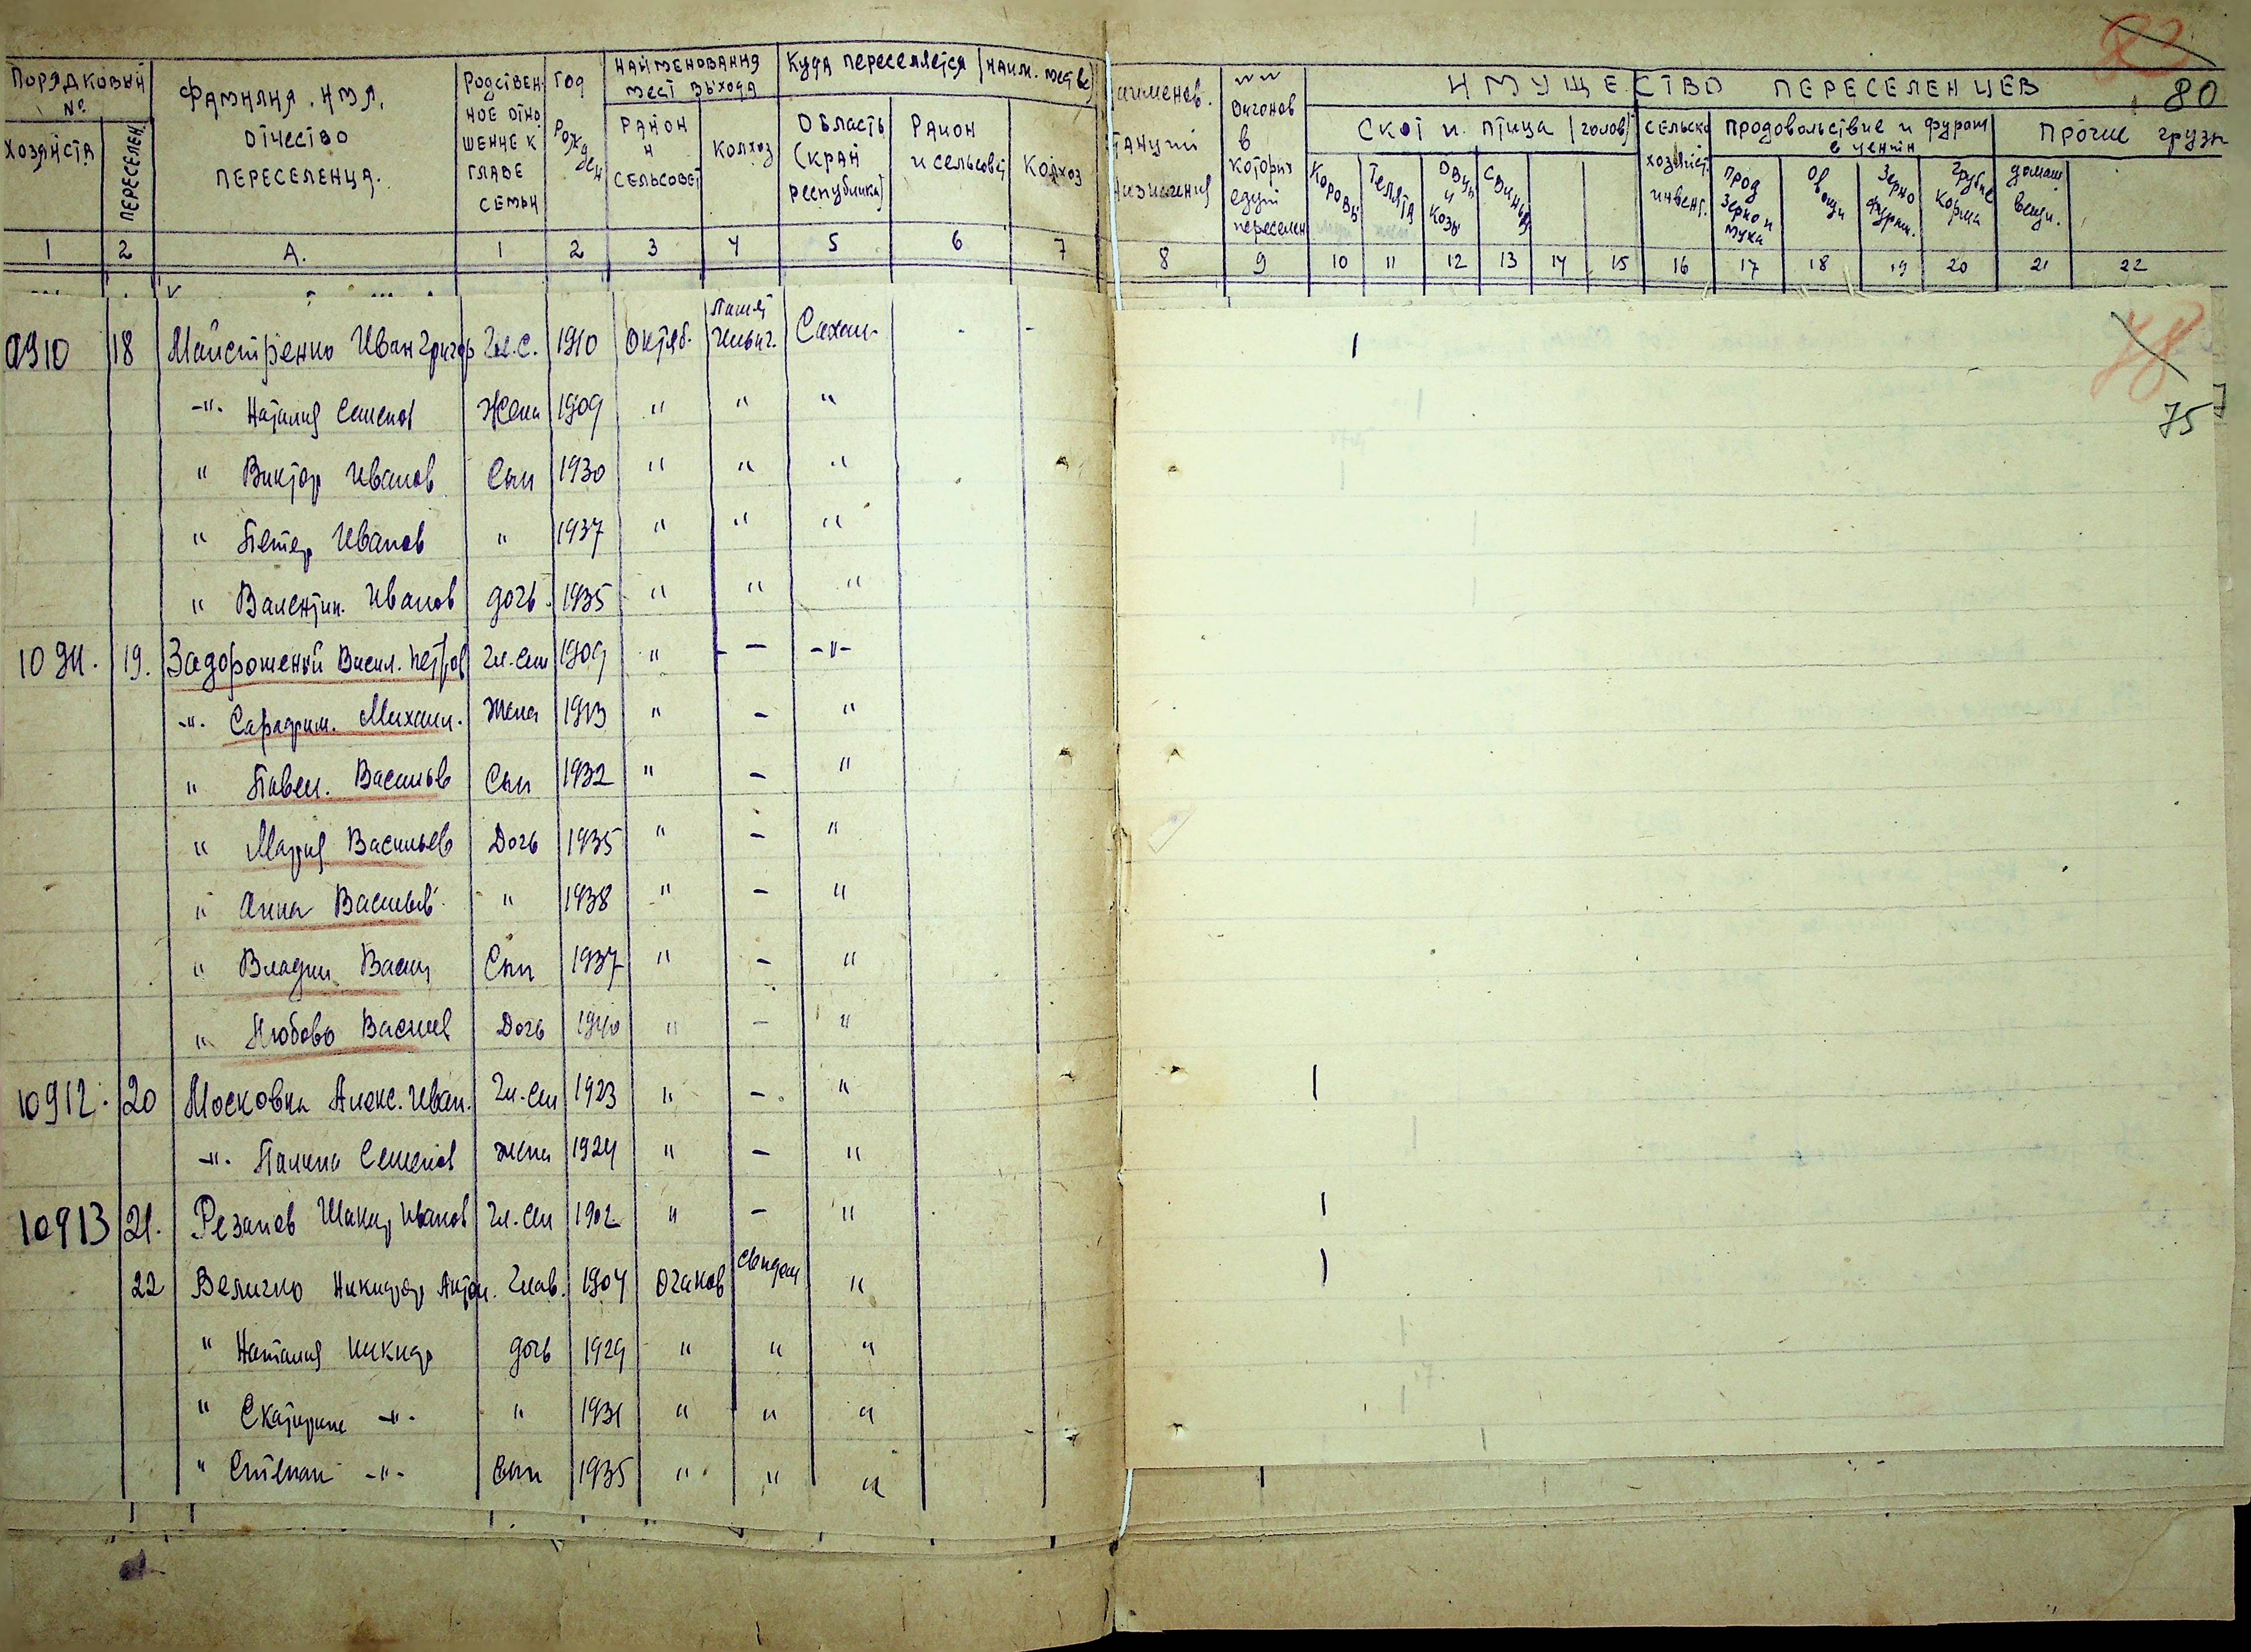 Порядковый №
Хозяйств
Переселен.
Фамилия, имя, отчество переселенца.
Родственное отношение к главе семьи
Год рожден
Наименования мест выхода
Район и сельсовет
Колхоз
Куда переселяется (наим. мест в)
Область (край республика)
Район и сельсовет
Колхоз
вагонов в которых едут переселен
ИМУЩЕСТВО ПЕРЕСЕЛЕНЦЕВ
80
Скот и птица (голов)
Коровы
Телята
Овцы и козы
Свиньи
сельско хозяйст. инвент.
Продовольствие и фураж в центн
прод зерно и мука
овощи
зерно фураж.
грубые корма
Прочие грузы
домаш вещи.
1 2 А. 1 2 3 4 5 6 7 8 9 10 11 12 13 14 15 16 17 18 19 20 21 22
0910 18 Майстренко Иван Григор Гл.с. 1910 Октяб. Ильич. Сахал. - - 1
78
75
-"- Наталия Семенов Жена 1909 " " "
" Виктор Иванов Сын 1930 " " "
" Петр Иванов " 1937 " " "
" Валентин. Иванов дочь. 1935 " " "
10911. 19. Задорожный Васил. Петров Гл. сем 1909 " - -"-
-"- Михаил. Жена 1913 " - "
" Павел. Васильев Сын 1932 " - "
" Мария Васильев Дочь 1935 " - "
" Анна Васильев " 1938 " - "
" Владим Васил Сын 1937 " - "
" Любовь Василев Дочь 1940 " - "
10912. 20 Московка Алекс. Иван. Гл. сем 1923 " - " 1
-"- Семенов жена 1924 " - "
10913 21. Резанов Иванов Гл. сем 1902 " - " 1
22 Величко Никифор Антон. Глав. 1904 Очаков " 1
" Наталия Никиф дочь 1929 " " "
" Екатерина -"- " 1931 " " "
" Степан -"- Сын 1935 " " "